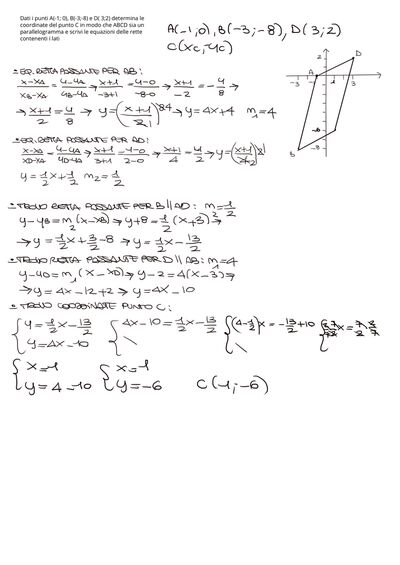 Dati i punti A(-1; 0), B(-3;-8) e D( 3;2) determina le
coordinate del punto C in modo che ABCD sia un
parallelogramma e scrivi le equazioni delle rette
contenenti i lati
A(-1,0), B(-3;-8), D(3;2)
C(xc,yc)
• EQ. RETTA PASSANTE PER AB:
x-xA/xB-xA = y-yA/yB-yA → x+1/-3+1 = y-0/-8-0 → x+1/-2 = -y/8 →
→ x+1/2 = y/8 → y=(x+1/2)84 → y=4x+4 m₁=4
• EQ. RETTA PASSANTE PER AD:
x-xA/xD-xA = y-yA/yD-yA → x+1/3+1 = y-0/2-0 → x+1/4 = y/2 → y=(x+1/42)2
y=1/2x+1/2 m₂=1/2
• TROVO RETTA PASSANTE PER B // AD: m=1/2
y-yB=m₂(x-xB) → y+8=1/2(x+3) →
→ y=1/2x+3/2-8 → y=1/2x-13/2
• TROVO RETTA PASSANTE PER D // AB: m=4
y-yD=m₁(x-xD) → y-2=4(x-3) →
→ y=4x-12+2 → y=4x-10
• TROVO COORDINATE PUNTO C:
{ y=1/2x-13/2 { 4x-10=1/2x-13/2 { (4-1/2)x=-13/2+10 { 7/2x=7/2
y=4x-10
{ x=1 { x=1
y=4-10 y=-6 C(1;-6)
A
B
D
-3
-1
1
3
2
-6
-8